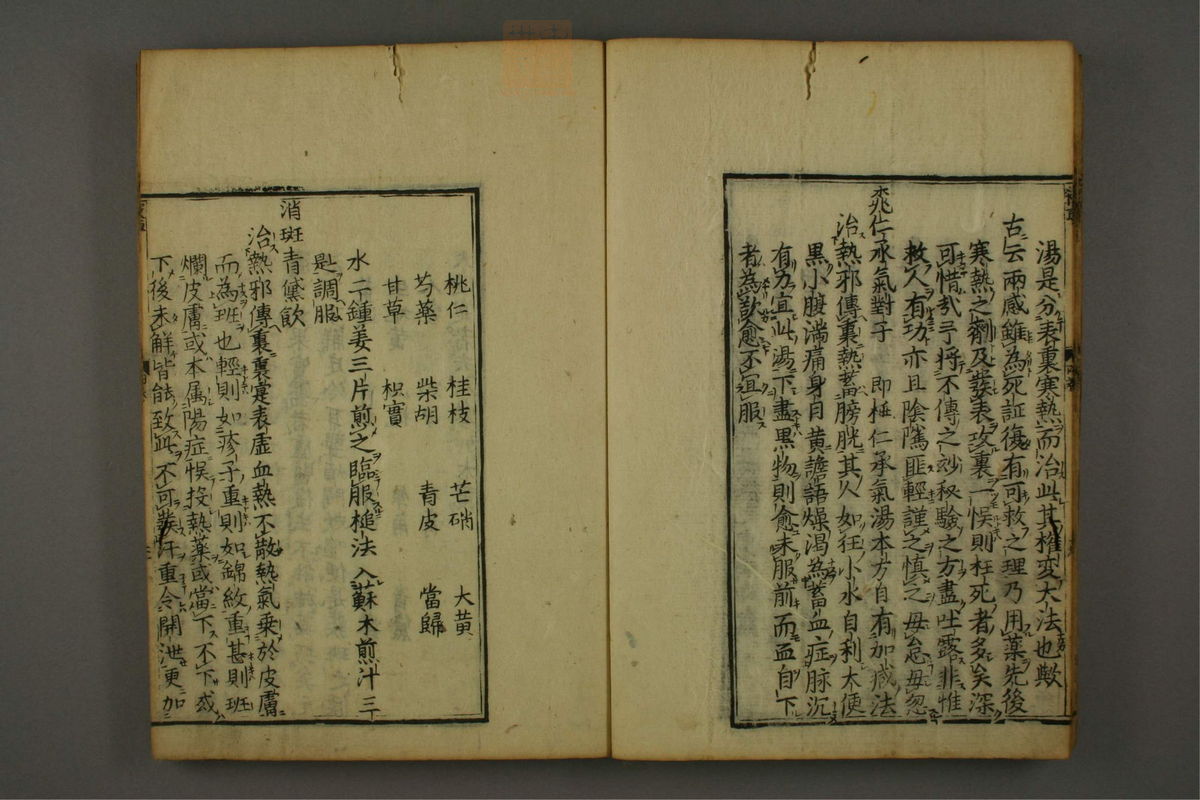 湯是分表裏寒熱而治此其權変大法也歟
古云兩感雖為死証復有可救之理乃用薬先後
寒熱之劑及發表攻裏一悞則枉死者多矣深
可惜㢤予將不傳之玅秘驗之方盡吐露非惟
救人有功亦且陰隲匪輕謹之慎之毋怠毋忽
桃仁承氣對子 即桃仁承氣湯本方自有加减法
治熱邪傳裏熱蓄膀胱其人如狂小水自利大便
黒小腹満痛身目黄譫語燥渇為蓄血症脉沉
有力宜此湯下盡黒物則愈未服前而血自下
者為欲愈不宜服
桃仁 桂枝 芒硝 大黄
芍薬 柴胡 青皮 當歸
甘草 枳實
水二鍾姜三片煎之臨服槌法入蘇木煎汁三
匙調服
消斑青黛飲
治熱邪傳裏裏寔表虚血熱不散熱氣乗於皮膚
而為班也輕則如疹子重則如錦紋重甚則班
爛皮膚或本属陽症悞投熱薬或當下不下或
下後未解皆能致此不可發汗重令開泄更加